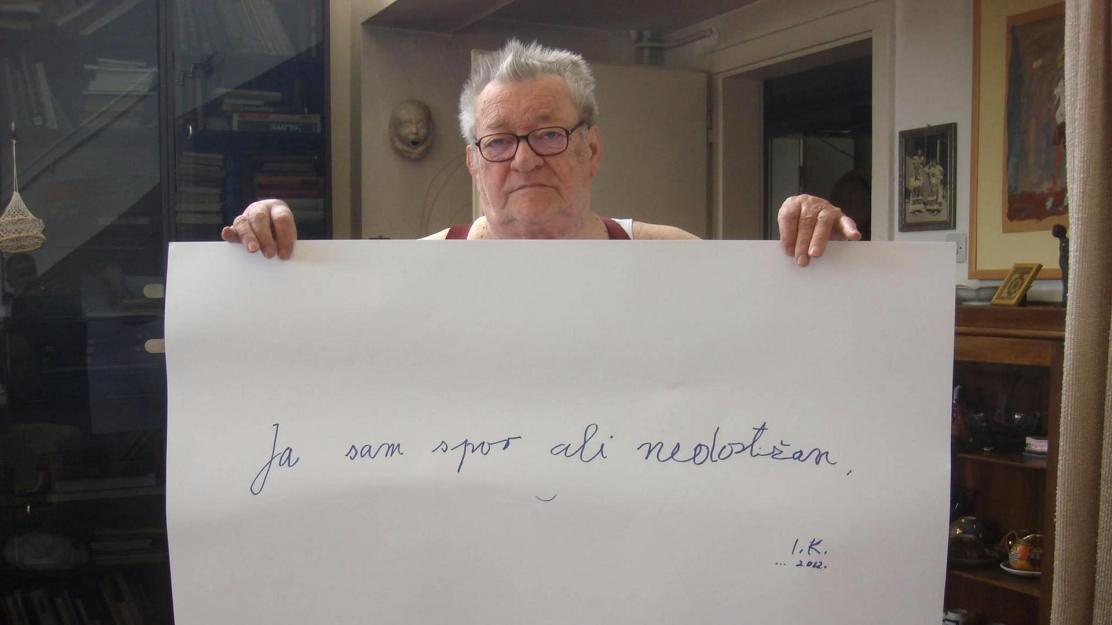 Ja sam spor ali nedostižan,
I.K.
... 2012.